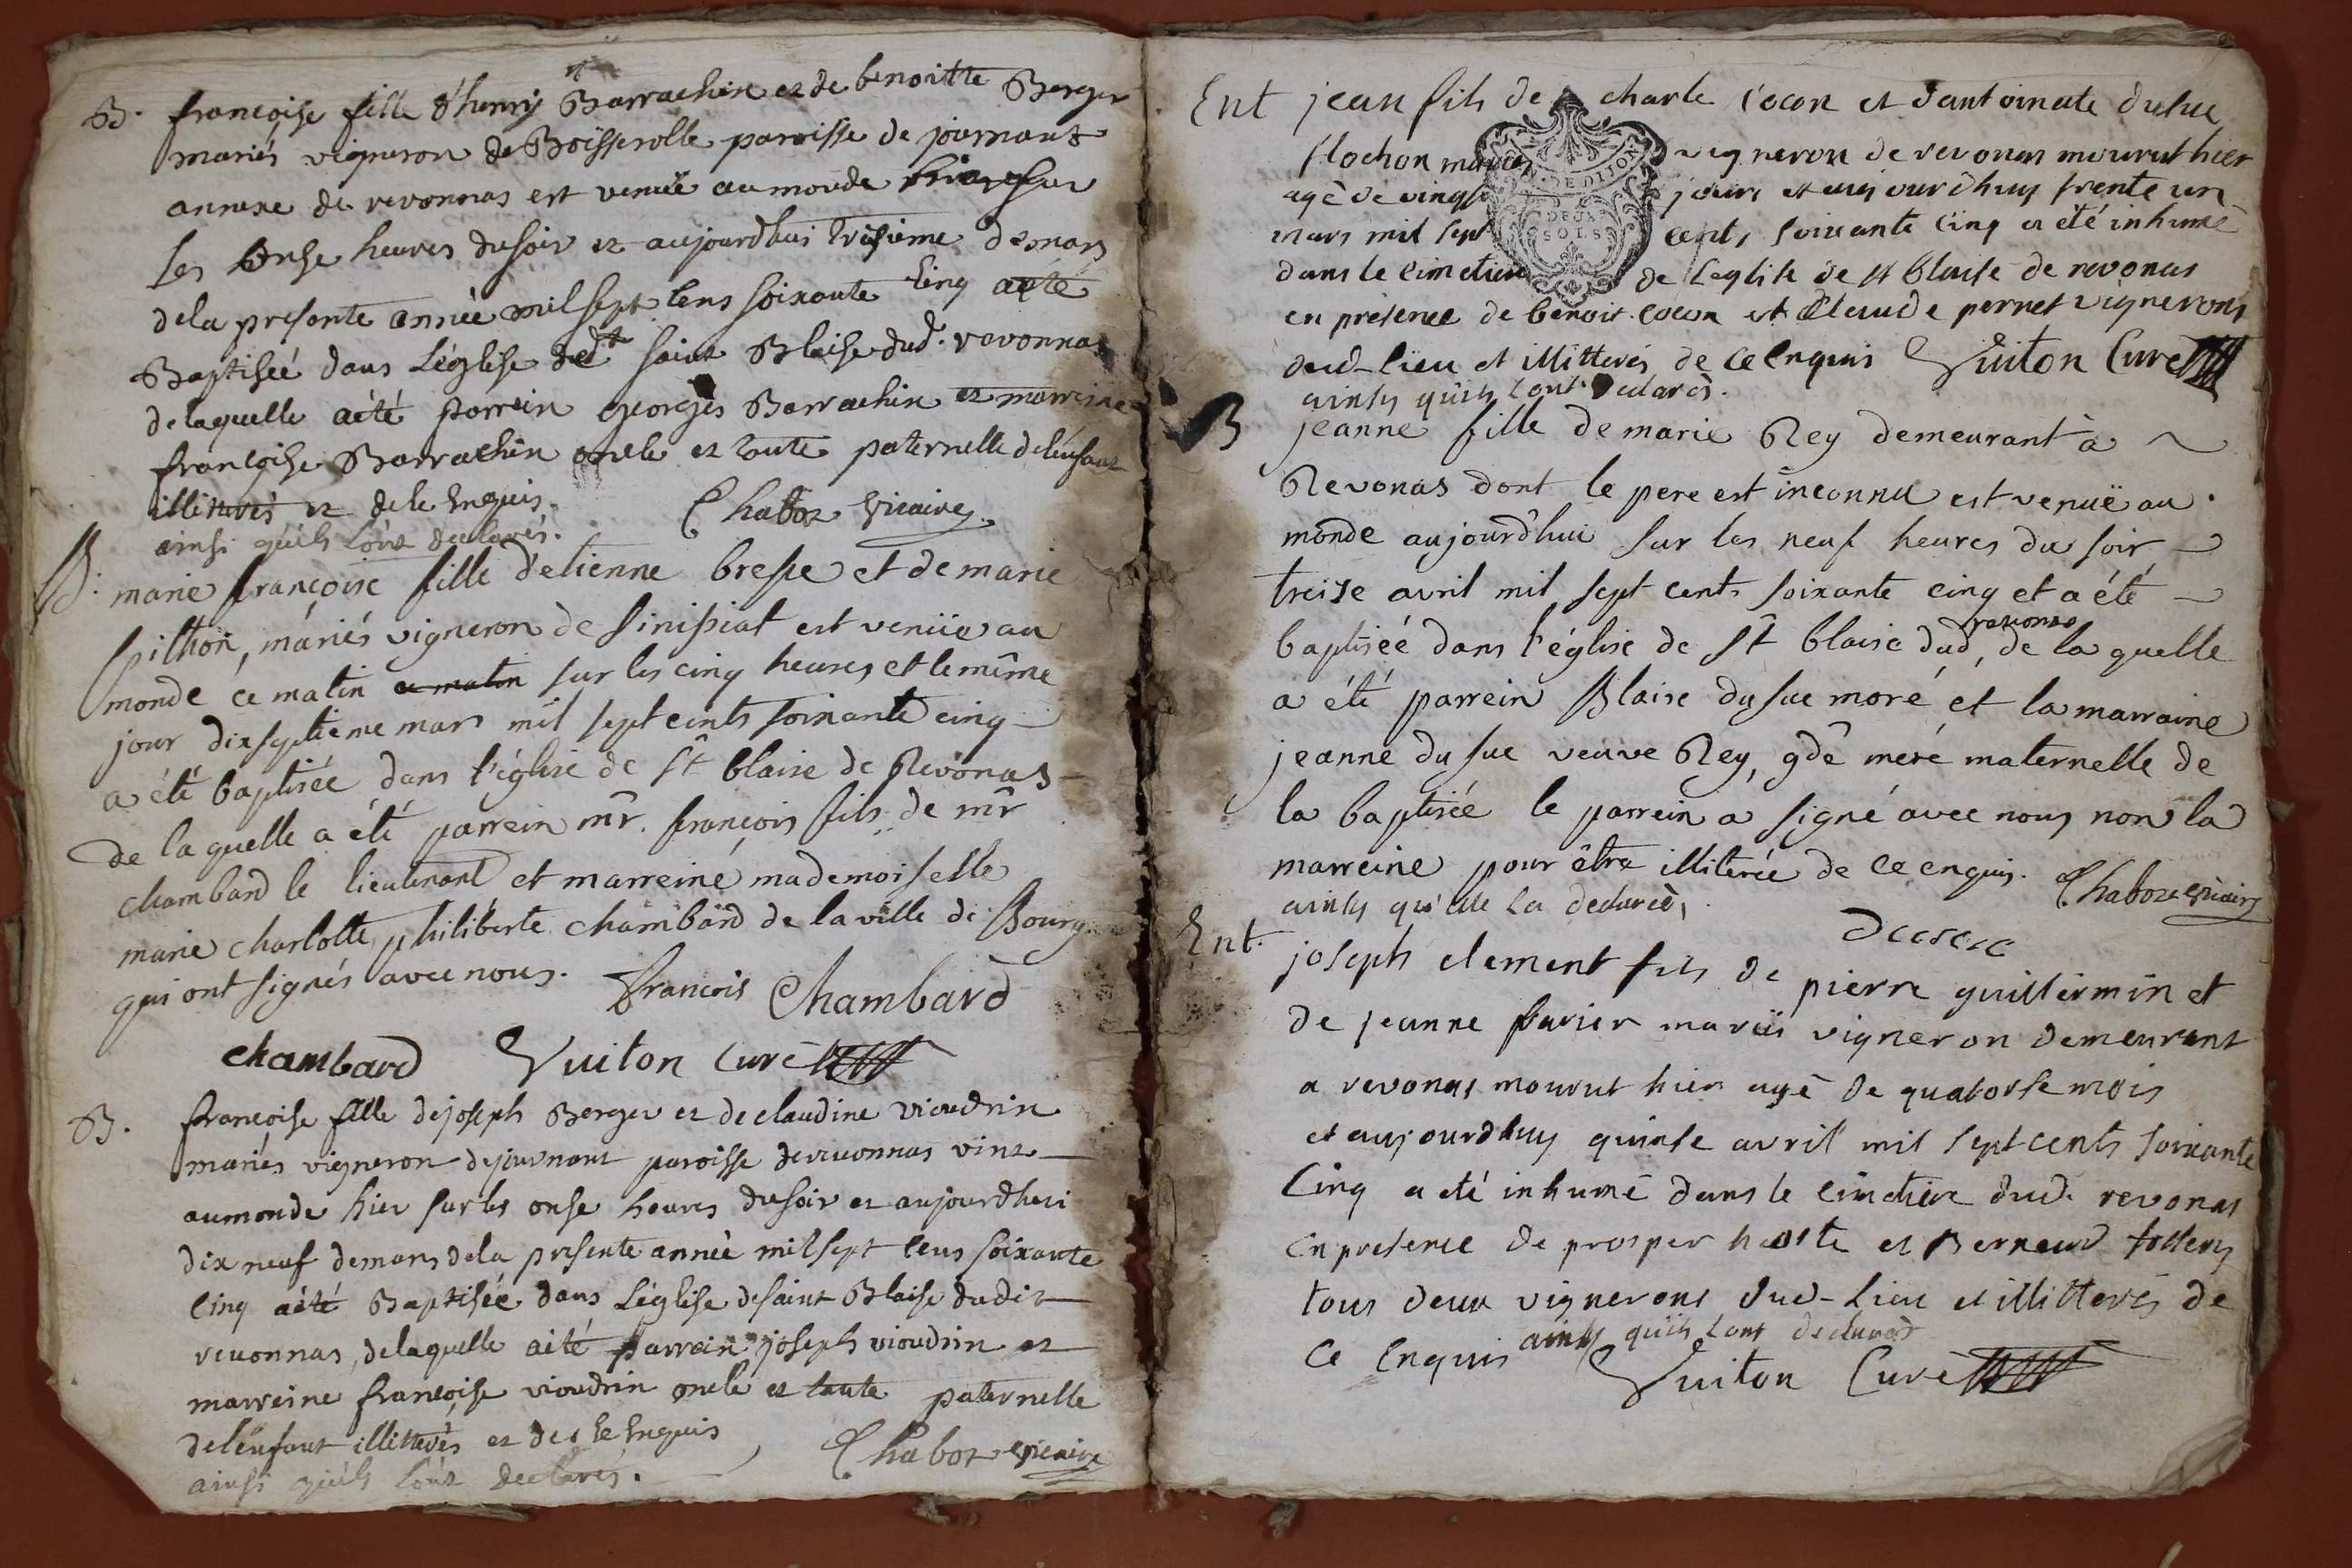 B. françoise fille d'henry Barrachin et de benoitte Berger
mariés vigneron de Boisserolle paroisse de journant
annexe de revonnas est venuë au monde hier sur
les onse heures du soir et aujourdhui trisieme de mars
de la presente année mil sept cens soixante cinq a été
Baptisée dans L'église dudt saint Blaise dud. revonnas
de laquelle a été parrein georges Barrachin et marreine
françoise Barrachin oncle et tante paternelle de l'enfant
illitterés et de ce enquis.
ainsi qu'ils l'ont declarés. Chaboz vicaire
B. marie françoise fille d'etienne bresse et de marie
pithon, mariés vigneron de sinissiat est venüe au
monde ce matin ce matin sur les cinq heures et le même
jour dixseptieme mars mil sept cents soixante cinq
a été baptisée dans l'église de st blaise de Revonas
de la quelle a été parrein mr. françois fils de mr
chambard le lieutenant et marreine mademoiselle
marie charlotte philiberte chambard de la ville de Bourg
qui ont signés avec nous. francois Chambard
chambard Vuiton Curé
B. françoise fille de joseph Berger et de claudine vioudrin
mariés vigneron de journant paroisse de revonnas vint
au monde hier sur les onse heures du soir et aujourdhui
dix neuf de mars de la presente année mil sept cens soixante
cinq a été Baptisée dans L'église de saint Blaise dudit
revonnas, de laquelle a été parrein joseph vioudrin et
marreine françoise vioudrin oncle et tante paternelle
de l'enfant illitterés et de ce enquis
ainsi qu'ils l'ont declarés. Chaboz vicaire
Ent jean fils de charle cocon et d'antoinete dusuc
flochon mariés vigneron de revonas mourut hier
agé de vingt jours et aujourdhuy trente un
mars mil sept cents soixante cinq a été inhumé
dans le cimetiere de l'eglise de st blaise de revonas
en présence de benoit cocon et Claude pernet vignerons
dud-lieu et illitterés de ce enquis Vuiton Curé
ainsy quils l'ont declarés.
B jeanne fille de marie Rey demeurant à
Revonas dont le pere est inconnu est venuë au
monde aujourd'hui sur les neuf heures du soir
treise avril mil sept cents soixante cinq et a été
baptisée dans l'église de st blaise dud, revonas de la quelle
a été parrein Blaise dusuc moré et la marraine
jeanne dusuc veuve Rey, gde mere maternelle de
la baptisée le parrein a signé avec nous non la
marreine pour être illiterée de ce enquis. Chaboz vicaire
ainsy qu'elle la declarée,
dusuc
Ent. joseph clement fils de pierre guillermin et
de jeanne favier mariés vigneron demeurant
a revonas mourut hier agé de quatorse mois
et aujourdhuy quinse avril mil sept cents soixante
Cinq a été inhumé dans le cimetiere dud. revonas
en presence de prosper haste et Bernard
tous deux vignerons dud-lieu et illitterés de
ce enquis ainsy quils l'ont declarés
Vuiton Curé
G. N. DE DIJON
DEUX
SOLS